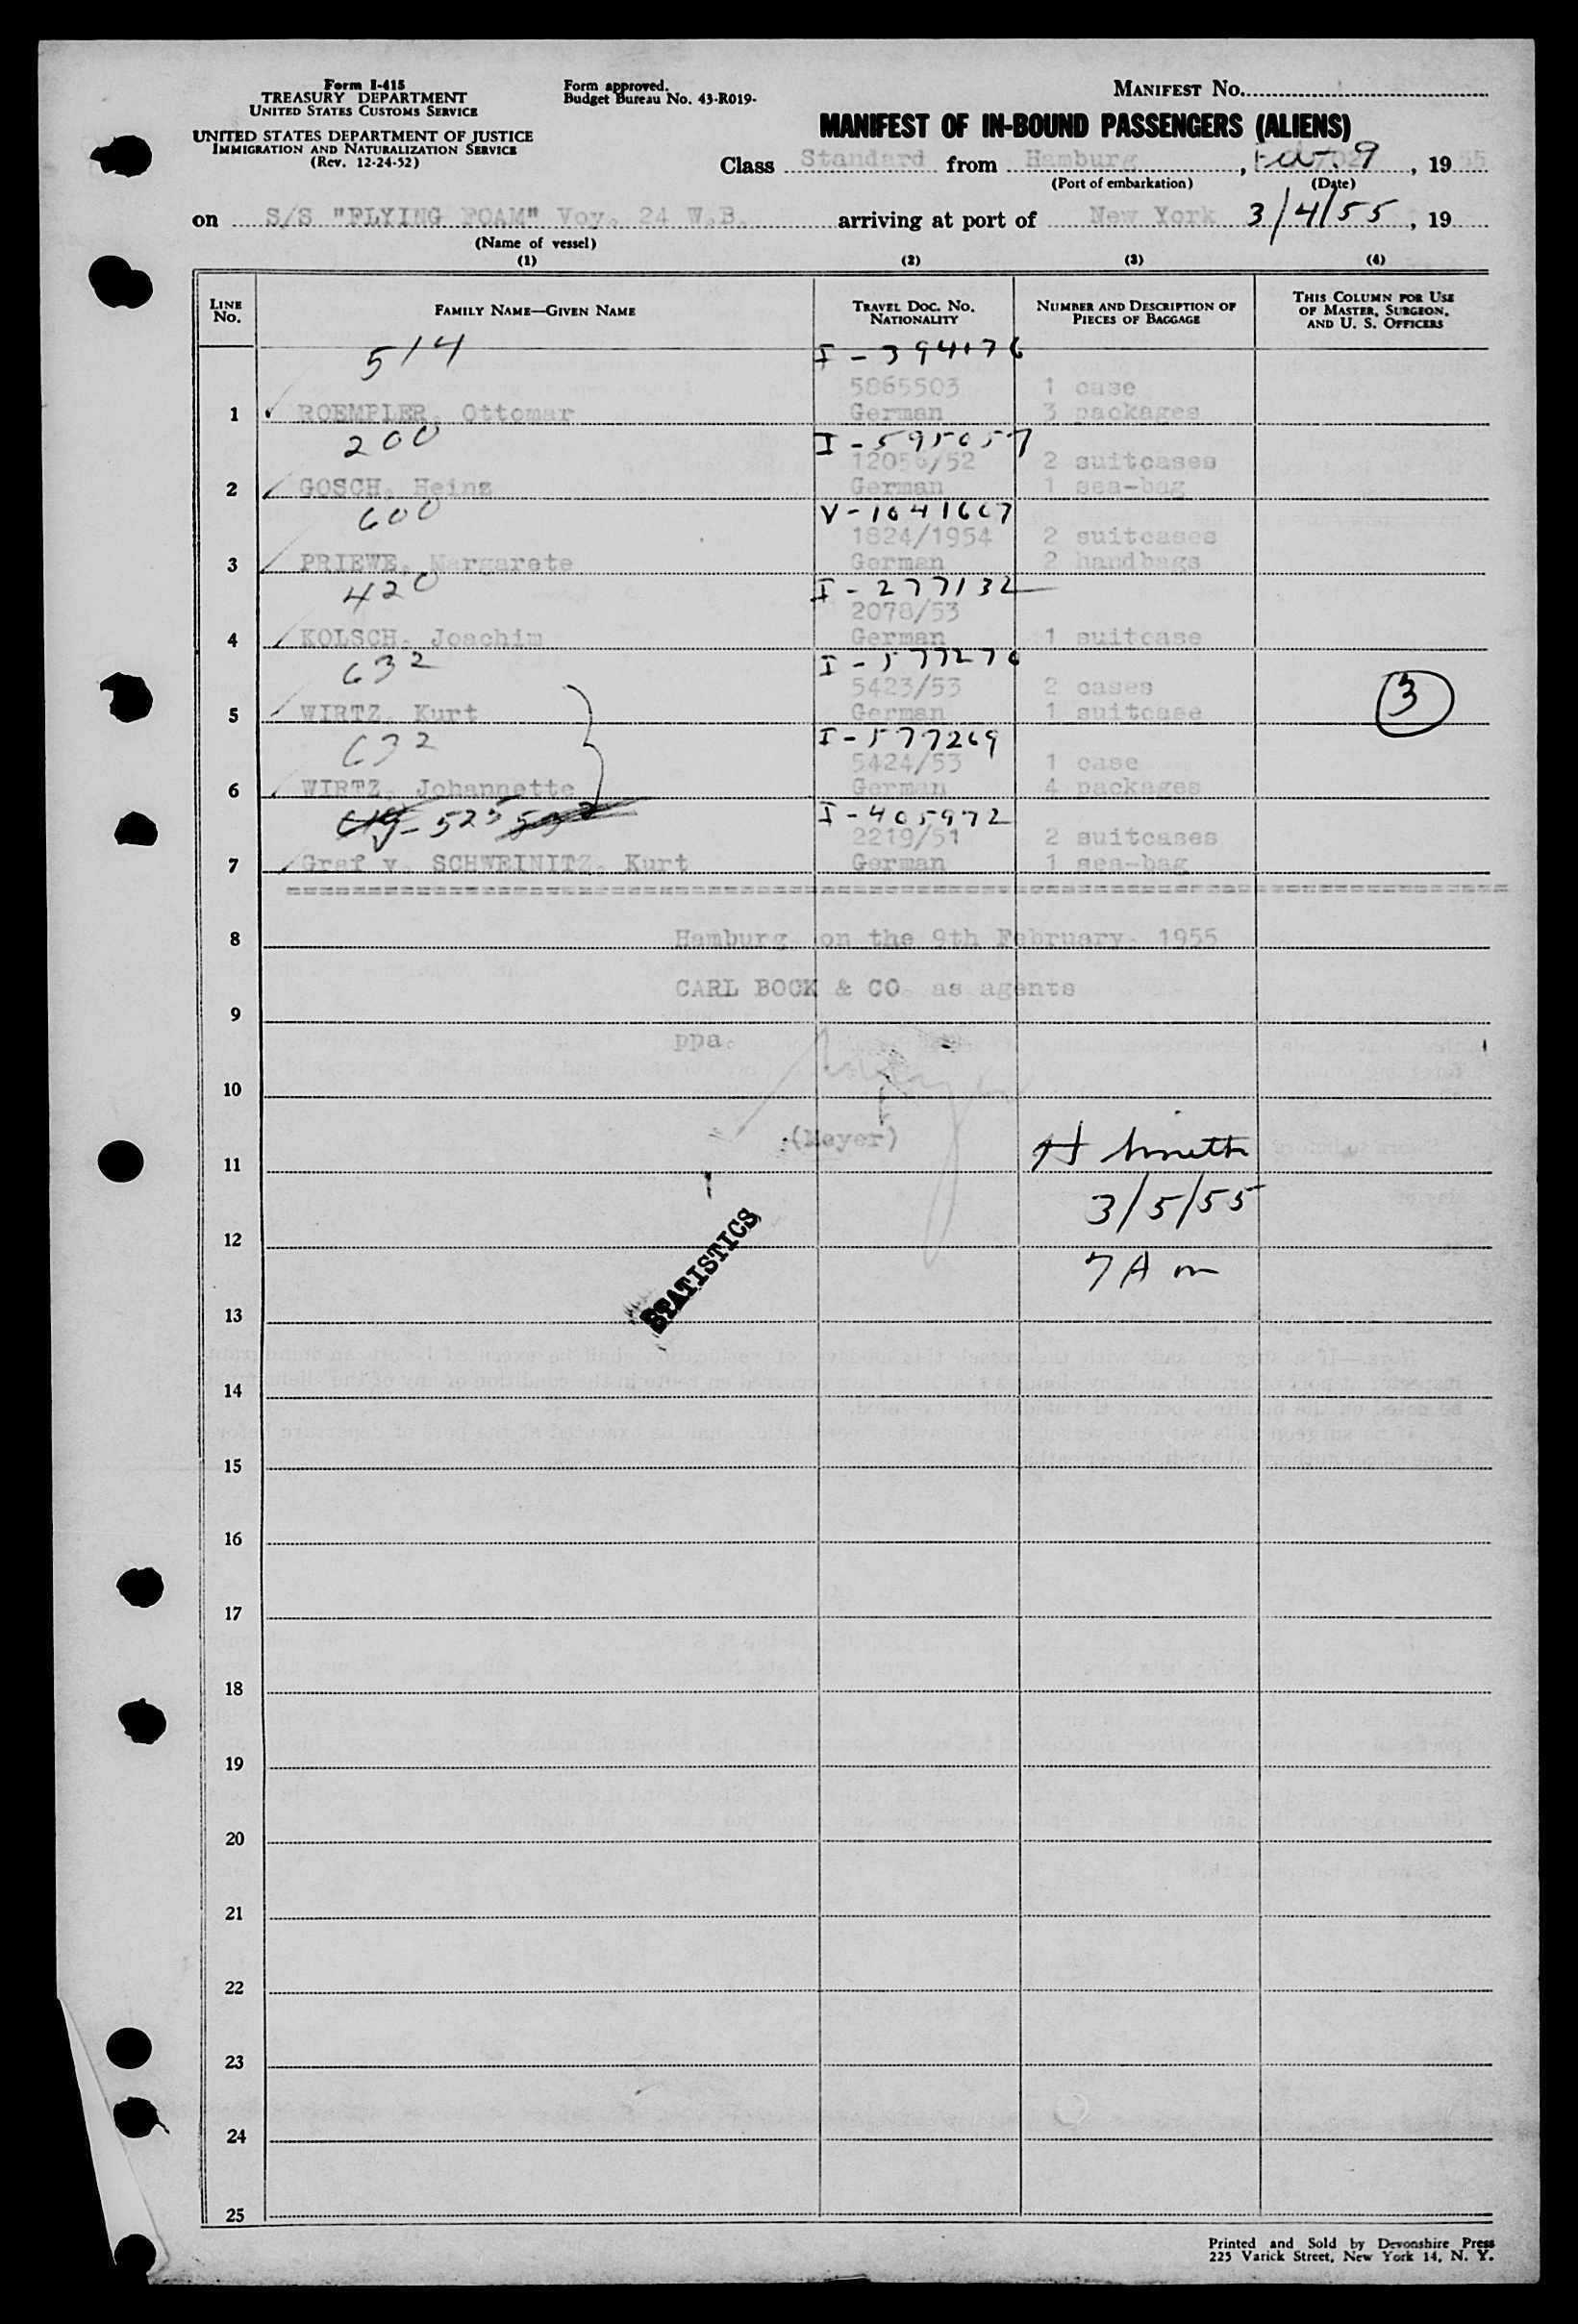 Form I-415
TREASURY DEPARTMENT
UNITED STATES CUSTOMS SERVICE
UNITED STATES DEPARTMENT OF JUSTICE
IMMIGRATION AND NATURALIZATION SERVICE
(Rev. 12-24-52)
Form approved.
Budget Bureau No. 43-R019-
MANIFEST NO.
MANIFEST OF IN-BOUND PASSENGERS (ALIENS)
Class Standard from Hamburg, 9, 1955
(Port of embarkation) (Date)
on S/S "FLYING FOAM" Voy. 24 W.B. arriving at port of New York 3/4/55, 19
(Name of vessel)
(1) (2) (3) (4)
LINE NO. FAMILY NAME—GIVEN NAME TRAVEL DOC. NO. NATIONALITY NUMBER AND DESCRIPTION OF PIECES OF BAGGAGE THIS COLUMN FOR USE OF MASTER, SURGEON, AND U. S. OFFICERS
514 I-394176
5865503 1 case
1 ROEMPLER, Ottomar German 3 packages
200 I-595057
12056/52 2 suitcases
2 GOSCH, Heinz German 1 sea-bag
600 V-1041667
1824/1954 2 suitcases
3 PRIEWE, Margarete German 2 handbags
420 I-277132
2078/53
4 KOLSCH, Joachim German 1 suitcase
632 I-577270
5423/53 2 cases
5 WIRTZ, Kurt German 1 suitcase 3
632 I-577269
5424/53 1 case
6 WIRTZ, Johannette German 4 packages
525 I-405972
2219/51 2 suitcases
7 Graf v. SCHWEINITZ, Kurt German 1 sea-bag
8 Hamburg, on the 9th February, 1955
CARL BOCK & CO. as agents
9
ppa.
10
(Meyer)
11 H Smith
3/5/55
12
7 A m
STATISTICS
13
14
15
16
17
18
19
20
21
22
23
24
25
Printed and Sold by Devonshire Press
225 Varick Street, New York 14, N. Y.